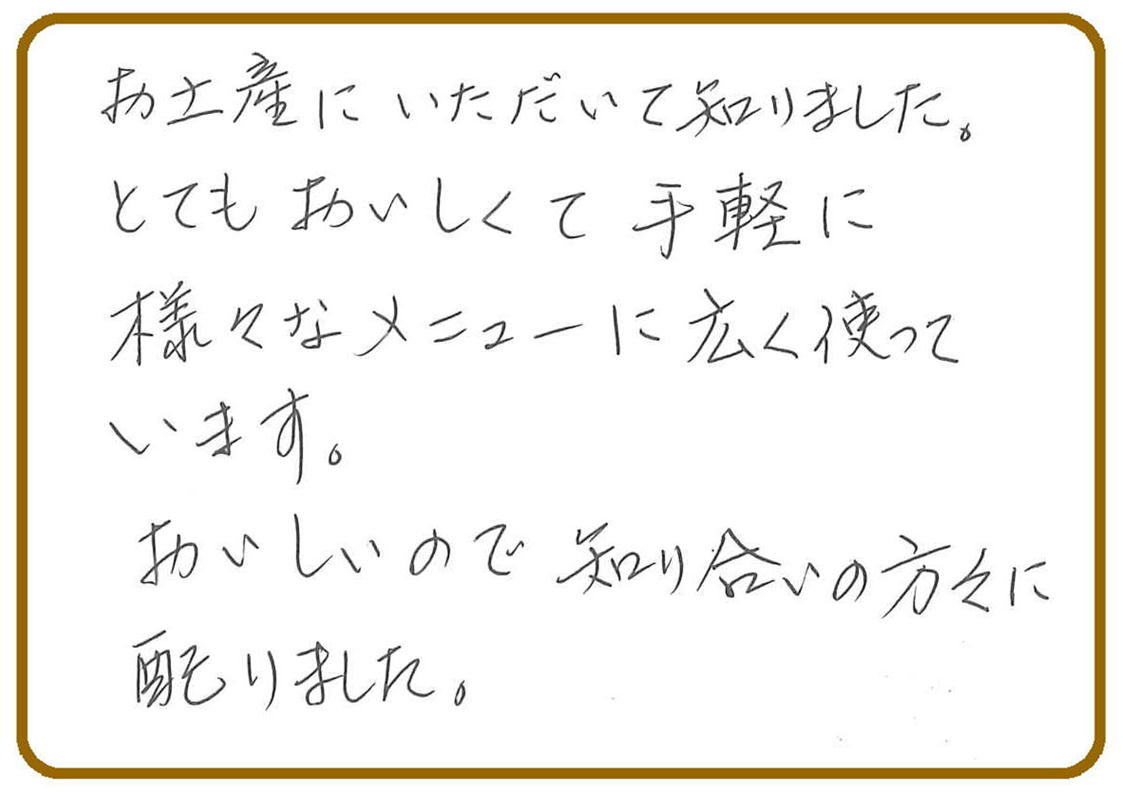 お土産にいただいて知りました。
とてもおいしくて手軽に
様々なメニューに広く使って
います。
おいしいので知り合いの方々に
配りました。